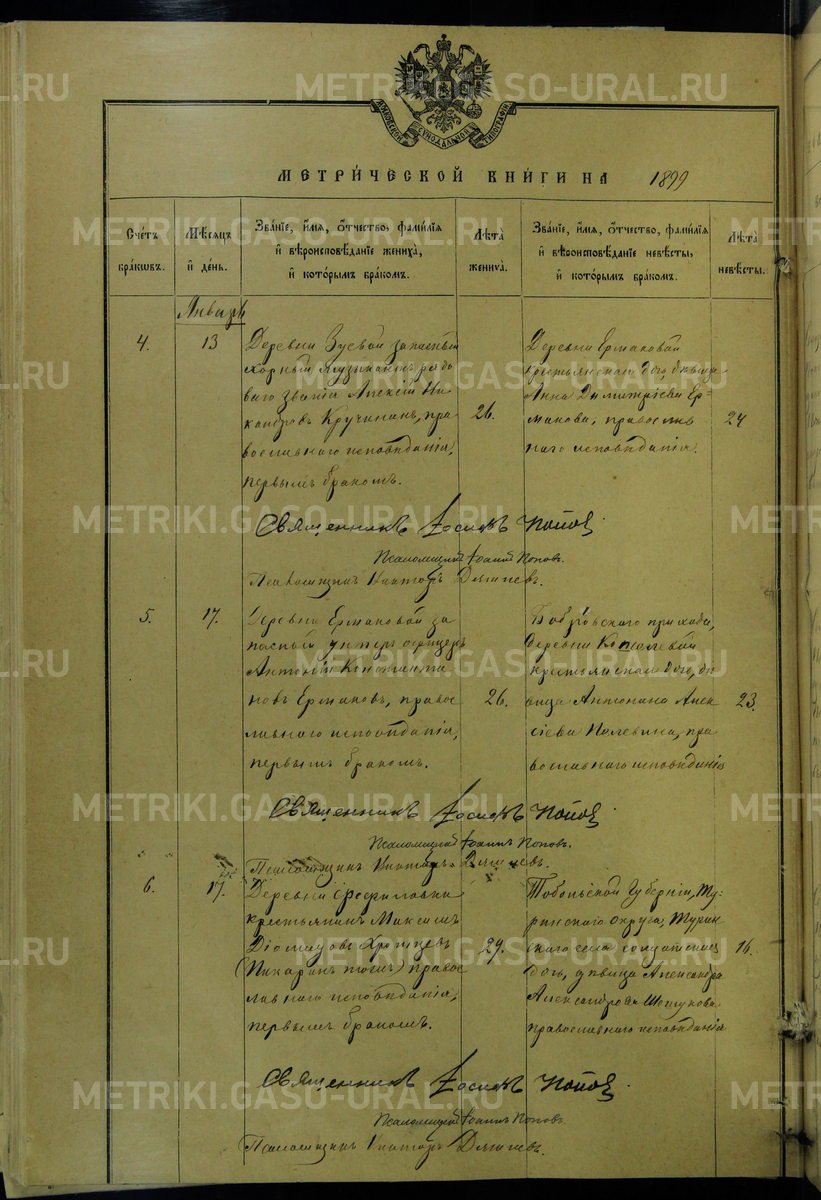 МОСКОВСКОЙ СѴНОДАЛЬНОЙ ТИПОГРАФІИ
МЕТРИ́ЧЕСКОЙ КНИ́ГИ НА 1899
Счéтъ бра́кѡвъ.
Мѣ́сѧцъ и҆ де́нь.
Зва́нїе, и҆́мѧ, ѻ҆́тчество, фами́лїѧ
и҆ вѣроисповѣ́данїе жениха́,
и҆ кото́рымъ бра́комъ.
Лѣ́та жениха́.
Зва́нїе, и҆́мѧ, ѻ҆́тчество, фами́лїѧ
и҆ вѣроисповѣ́данїе невѣ́сты,
и҆ кото́рымъ бра́комъ.
Лѣ́та невѣ́сты.
Январь
4.
13
Деревни Зуевой запасный
хорный музыкантъ рядо-
ваго званія Алексій Ни-
кандровъ Кручининъ, пра-
вославнаго исповѣданія,
первымъ бракомъ.
26.
Деревни Ермаковой
крестьянская дочь, дѣвица
Анна Димитріева Ер-
макова, православ
наго исповѣданія.
24
Священникъ Іосифъ Поповъ
Псаломщикъ Іоаннъ Поповъ.
Псаломщикъ Викторъ
5.
17.
Деревни Ермаковой за-
пасный унтеръ офицеръ
Антоній Константи
новъ Ермаковъ, правос-
лавнаго исповѣданія,
первымъ бракомъ.
26.
Бобровскаго прихода,
деревни
крестьянская дочь, дѣ
вица Антонина Алек-
сіева Полевина, пра
вославнаго исповѣданія
23.
Священникъ Іосифъ Поповъ
Псаломщикъ Іоаннъ Поповъ.
Псаломщикъ Викторъ
6.
17.
Деревни
крестьянинъ Максимъ
Діомидовъ
правос
лавнаго исповѣданія,
первымъ бракомъ.
29.
Тобольской Губерніи, Ту-
ринскаго округа, Турин
скаго села солдатская
дочь, дѣвица Александра
Александрова
православнаго исповѣданія
16.
Священникъ Іосифъ Поповъ
Псаломщикъ Іоаннъ Поповъ.
Псаломщикъ Викторъ
METRIKI.GASO-URAL.RU